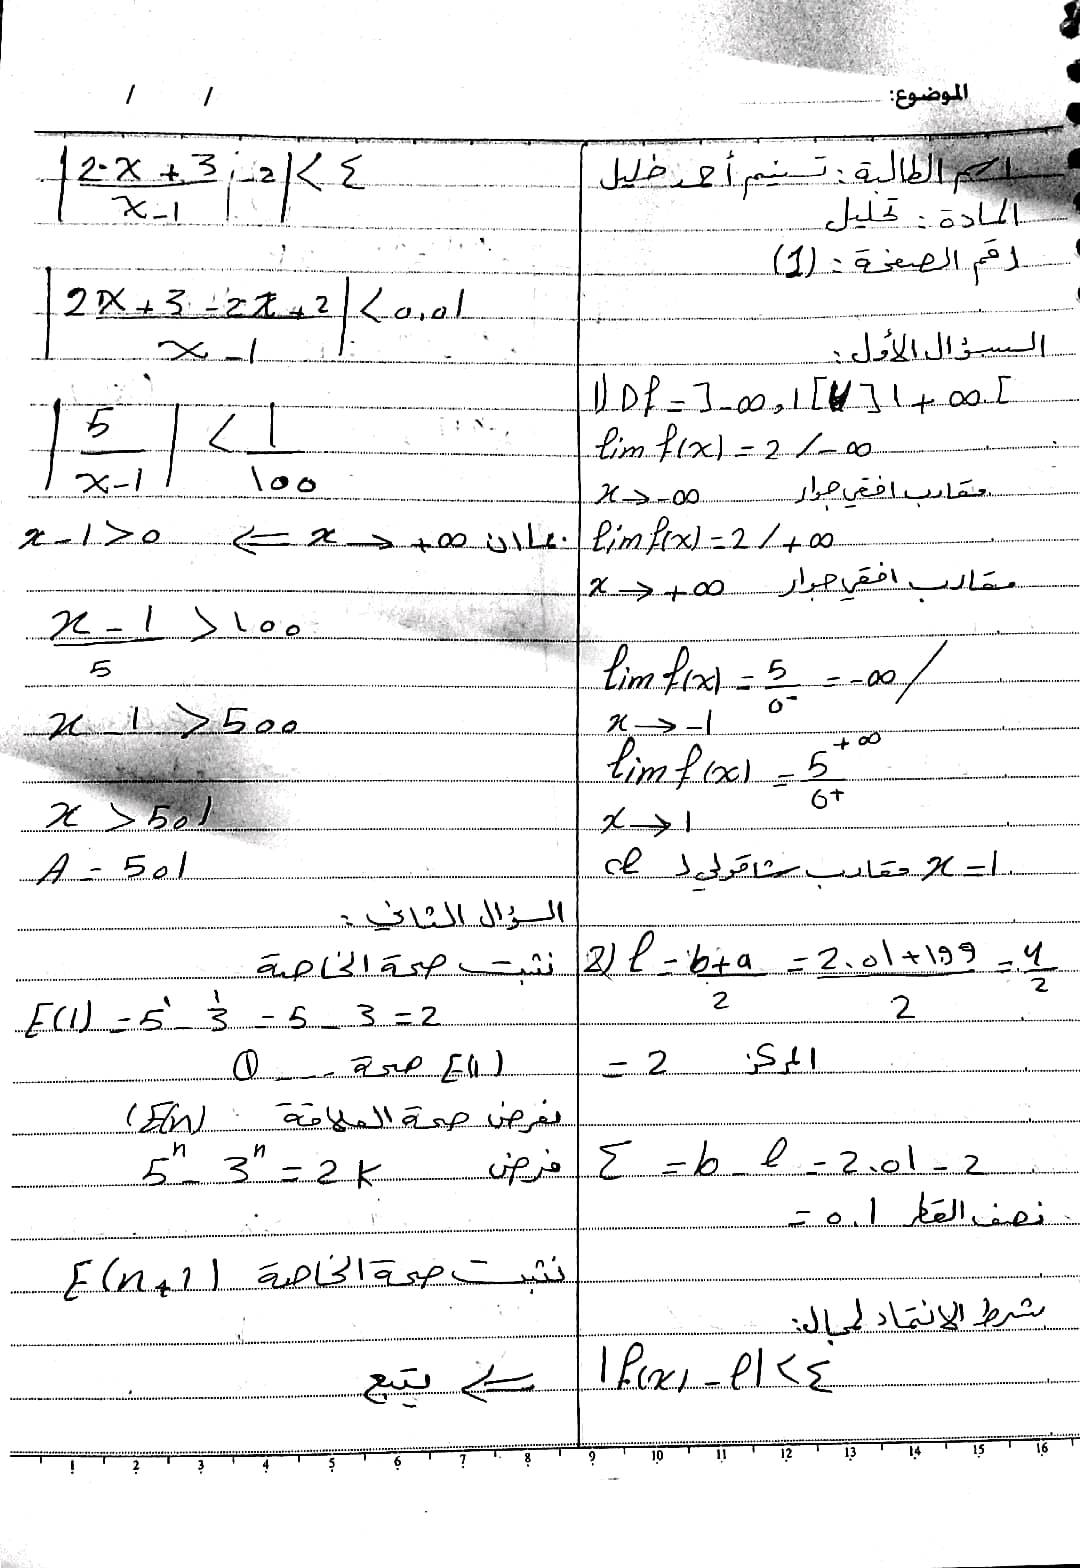 الموضوع:
/ /
اسم الطالبة: تسنيم أحمد خليل
المادة: تحليل
رقم الصفحة: (1)
السؤال الأول:
1) Df = ]-∞, 1[ ∪ ]1 + ∞[
lim f(x) = 2 / -∞
x → -∞ مقارب افقي جوار
lim f(x) = 2 / +∞
x → +∞ مقارب افقي جوار
lim f(x) = 5/0⁻ = -∞ /
x → -1
lim f(x) = 5/0⁺ +∞
x → 1
x = 1 مقارب شاقولي لـ cl
2) l = b+a/2 = 2.01+199/2 = 4/2
= 2 المركز
Σ = b - l = 2.01 - 2
= 0.1 نصف القطر
شرط الانتماء لمجال:
|f(x) - l| < Σ
|2·x + 3/x-1 - 2| < Σ
|2x + 3 - 2x + 2/x - 1| < 0,01
|5/x-1| < 1/100
بما ان x → +∞ ⇐ x - 1 > 0
x - 1/5 > 100
x - 1 > 500
x > 501
A = 501
السؤال الثاني:
نثبت صحة الخاصية
E(1) = 5¹ - 3¹ = 5 - 3 = 2
E(1) صحة ---- ①
نفرض صحة العلاقة E(n)
فرض 5ⁿ - 3ⁿ = 2K
نثبت صحة الخاصية E(n+1)
يتبع ⇐
1 2 3 4 5 6 7 8 9 10 11 12 13 14 15 16